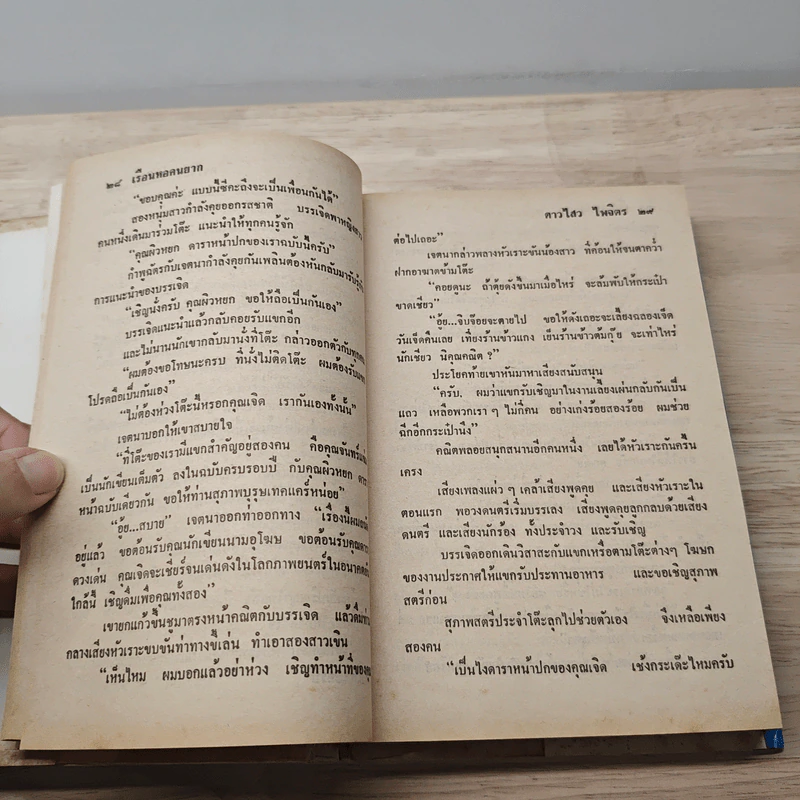 ๒๘ เรือนหอคนยาก
"ขอบคุณค่ะ แบบนี้ซีคะถึงจะเป็นเพื่อนกันได้"
สองหนุ่มสาวกำลังคุยออกรสชาติ บรรเจิดพาหญิงสาว
คนหนึ่งเดินมาร่วมโต๊ะ แนะนำให้ทุกคนรู้จัก
"คุณผิวหยก ดาราหน้าปกของเราฉบับนี้ครับ"
กำพูฉัตรกับเจตนากำลังคุยกันเพลินต้องหันกลับมารับรู้
การแนะนำของบรรเจิด
"เชิญนั่งครับ คุณผิวหยก ขอให้ถือเป็นกันเอง"
บรรเจิดแนะนำแล้วกลับคอยรับแขกอีก
และไม่นานนักเขากลับมานั่งที่โต๊ะ กล่าวออกตัวกับทุกคน
"ผมต้องขอโทษนะครับ ที่นั่งไม่ติดโต๊ะ ผมต้องรับแขก
โปรดถือเป็นกันเอง"
"ไม่ต้องห่วงโต๊ะนี้หรอกคุณเจิด เรากันเองทั้งนั้น"
เจตนาบอกให้เขาสบายใจ
"ที่โต๊ะของเรามีแขกสำคัญอยู่สองคน คือคุณจันทร์
เป็นนักเขียนเต็มตัว ลงในฉบับครบรอบปี กับคุณผิวหยก ดารา
หน้าปกฉบับเดียวกัน ขอให้ท่านสุภาพบุรุษเทคแคร์หน่อย"
"อู๊ย...สบาย" เจตนาออกท่าออกทาง "เรื่องนี้ผม
อยู่แล้ว ขอต้อนรับคุณนักเขียนนามอุโฆษ ขอต้อนรับคุณดารา
ดวงเด่น คุณเจิดจะเชียร์จนเด่นดังในโลกภาพยนตร์ในอนาคต
ใกล้นี้ เชิญดื่มเพื่อคุณทั้งสอง"
เขายกแก้วขึ้นชูมาตรงหน้าคณิตกับบรรเจิด แล้วดื่ม
กลางเสียงหัวเราะขบขันท่าทางขี้เล่น ทำเอาสองสาวเขิน
"เห็นไหม ผมบอกแล้วอย่าห่วง เชิญทำหน้าที่ของคุณ
ดาวไสว ไพจิตร ๒๙
ต่อไปเถอะ"
เจตนากล่าวพลางหัวเราะขันน้องสาว ที่ค้อนให้จนตาคว่ำ
ฝากอาฆาตข้ามโต๊ะ
"คอยดูนะ ถ้าตุ้ยดังขึ้นมาเมื่อไหร่ จะล้มพับให้กระเป๋า
ขาดเชียว"
"อู๊ย...จิบจ๊อยจะตายไป ขอให้ดังเถอะจะเลี้ยงฉลองเจ็ด
วันเจ็ดคืนเลย เที่ยงร้านข้าวแกง เย็นร้านข้าวต้มกุ๊ย จะเท่าไหร่
นักเชียว นิคุณคณิต ?"
ประโยคท้ายเขาหันมาหาเสียงสนับสนุน
"ครับ. ผมว่าแขกรับเชิญมาในงานเลี้ยงเผ่นกลับกันเป็น
แถว เหลือพวกเราๆ ไม่กี่คน อย่างเก่งร้อยสองร้อย ผมช่วย
ฉีกอีกกระเป๋านึง"
คณิตพลอยสนุกสนานอีกคนหนึ่ง เลยได้หัวเราะกันครื้น
เครง
เสียงเพลงแผ่ว ๆ เคล้าเสียงพูดคุย และเสียงหัวเราะใน
ตอนแรก พอวงดนตรีเริ่มบรรเลง เสียงพูดคุยถูกกลบด้วยเสียง
ดนตรี และเสียงนักร้อง ทั้งประจำวง และรับเชิญ
บรรเจิดออกเดินวิสาสะกับแขกเหรื่อตามโต๊ะต่างๆ โฆษก
ของงานประกาศให้แขกรับประทานอาหาร และขอเชิญสุภาพ
สตรีก่อน
สุภาพสตรีประจำโต๊ะลุกไปช่วยตัวเอง จึงเหลือเพียง
สองคน
"เป็นไงดาราหน้าปกของคุณเจิด เช้งกระเด๊ะไหมครับ